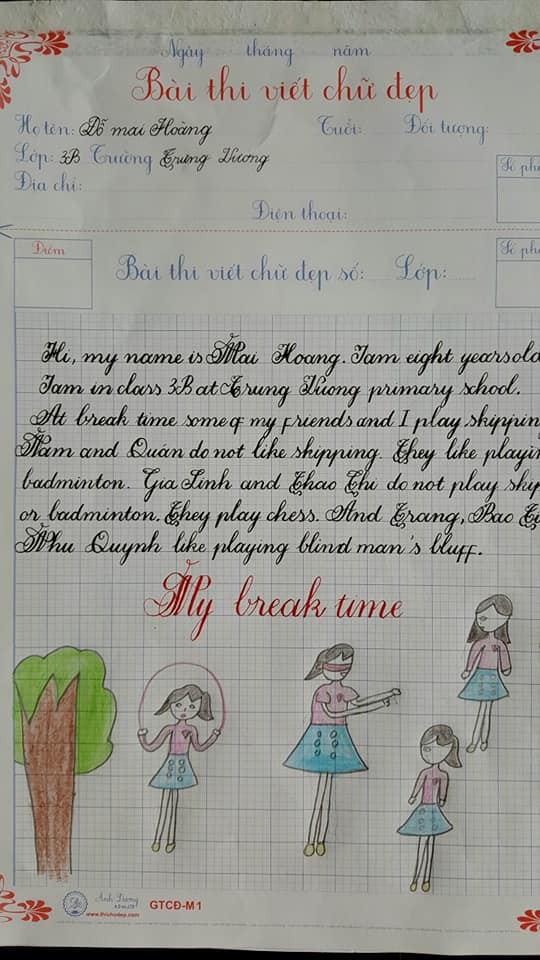 Ngày tháng năm
Bài thi viết chữ đẹp
Họ tên: Đỗ mai Hoàng Tuổi: Đối tượng:
Lớp: 3B Trường Trưng Vương
Địa chỉ: Số ph
Điện thoại:
Điểm Số ph
Bài thi viết chữ đẹp số: Lớp:
Hi, my name is Mai Hoang. Iam eight yearsold
Iam in class 3B at Trung Vuong primary school.
At break time some of my friends and I play skippin
Nam and Quán do not like skipping. They like playin
badminton. Gia Linh and Thao Chi do not play skip
or badminton. They play chess. And Trang, Bao
Nhu Quynh like playing blind man's bluff.
My break time
Ánh Dương
www.thichudep.com GTCĐ-M1